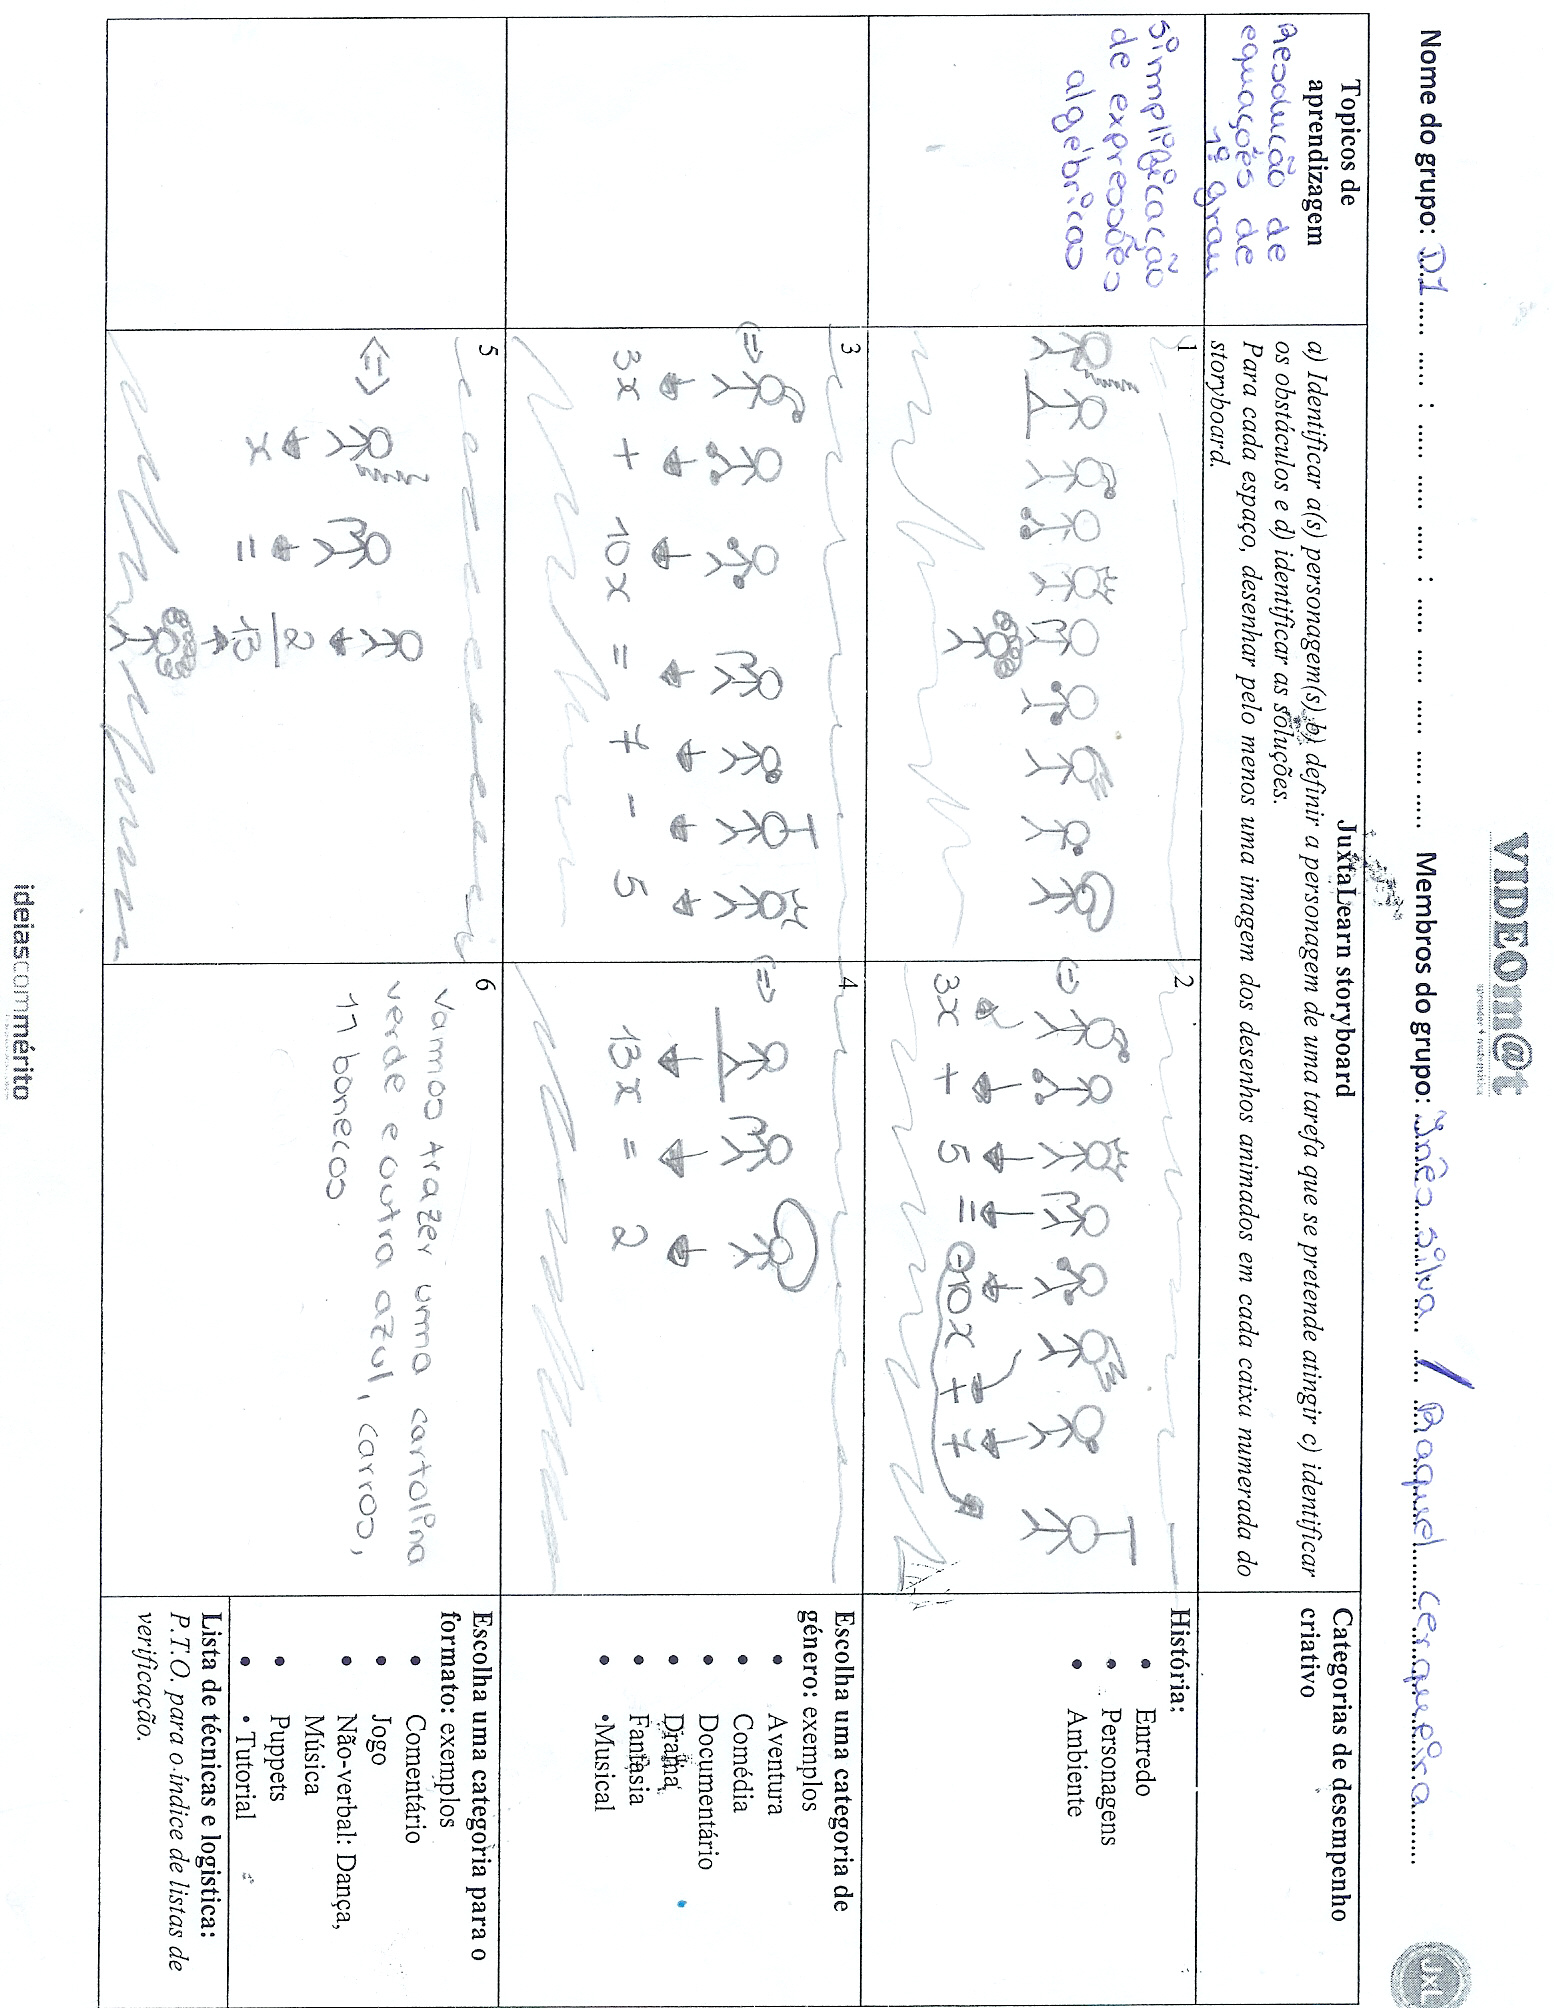 VIDEOm@t
aprender + matemática
JxL
Nome do grupo: D1 ..... ..... : ..... ..... ..... : ..... ..... ..... ..... ..... Membros do grupo: Inês Silva / Raquel Cerqueira
Topicos de
aprendizagem
JuxtaLearn storyboard
Categorias de desempenho
criativo
Resolução de
equações de
1º grau
a) Identificar a(s) personagem(s) b) definir a personagem de uma tarefa que se pretende atingir c) identificar
os obstáculos e d) identificar as soluções.
Para cada espaço, desenhar pelo menos uma imagem dos desenhos animados em cada caixa numerada do
storyboard.
simplificação
de expressões
algébricas
1
2
(=)
3x + 5 = -10x + 7
História:
• Enrredo
• Personagens
• Ambiente
3
(=)
3x + 10x = 7 - 5
4
(=)
13x = 2
Escolha uma categoria de
género: exemplos
• Aventura
• Comédia
• Documentário
• Drama
• Fantasia
• •Musical
5
<=>
x = 2
13
6
Vamos trazer uma cartolina
verde e outra azul, carros,
11 bonecos
Escolha uma categoria para o
formato: exemplos
• Comentário
• Jogo
• Não-verbal: Dança,
Música
• Puppets
• • Tutorial
Lista de técnicas e logistica:
P.T.O. para o índice de listas de
verificação.
ideiascommérito